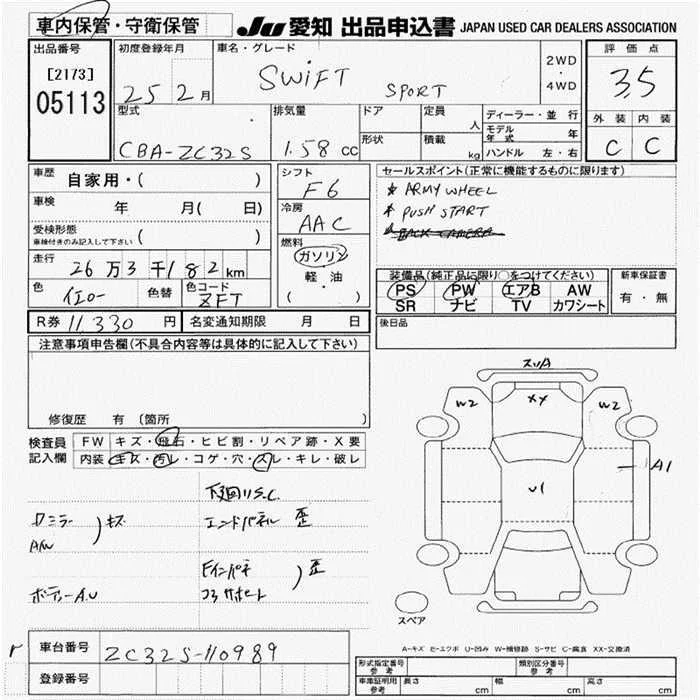 車内保管・守衛保管
JU 愛知 出品申込書 JAPAN USED CAR DEALERS ASSOCIATION
出品番号
[2173]
05113
初度登録年月
25 2月
車名・グレード
SWIFT SPORT
2WD
・
4WD
評価点
3.5
外装 内装
C C
型式
CBA-ZC32S
排気量
1.58 cc
ドア
形状
定員
人
積載
kg
ディーラー・並行
モデル年式 年
ハンドル 左・右
車歴
自家用・( )
車検
年 月( 日)
受検形態
車検付きのみ記入して下さい ( )
走行
26万3千182km
色
イエロー
色替
色コード
ZFT
シフト
F6
冷房
AAC
燃料
ガソリン
軽・油
( ・ )
セールスポイント(正常に機能するものに限ります)
* ARMY WHEEL
* PUSH START
* BACK CAMERA
装備品(純正品に限り○をつけてください)
PS PW エアB AW
SR ナビ TV カワシート
新車保証書
有・無
R券 11,330 円
名変通知期限 月 日
後日品
注意事項申告欄(不具合内容等は具体的に記入して下さい)
修復歴 有 (箇所 )
検査員記入欄
FW キズ・飛石・ヒビ割・リペア跡・X要
内装 キズ・汚レ・コゲ・穴・スレ・キレ・破レ
下廻りS.C
ミラー ) キズ
A/W
エンドパネル 歪
Fインパネ ) 歪
コアサポート
ボディーA.U
スリA
W2
XX
W2
A1
U1
スペア
A-キズ E-エクボ U-凹み W-補修跡 S-サビ C-腐食 XX-交換済
車台番号
ZC32S-110989
登録番号
r
形式指定番号
参考
類別区分番号
参考
車庫証明用
参考
長さ cm
幅 cm
高さ cm